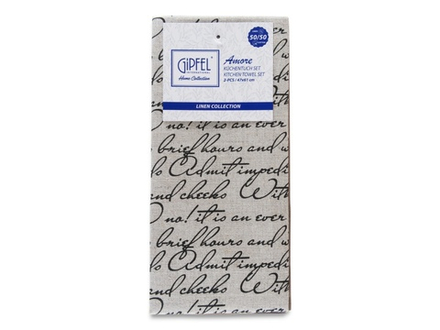 50/50
GiPFEL
INTERNATIONAL
Home Collection
Amore
KÜCHENTUCH SET
KITCHEN TOWEL SET
2-PCS / 47x61 cm
LINEN COLLECTION
no! it is an ever
brief hours and w
ds Admit impedi
and cheeks With
O no! it is an ever
brief hours and w
ds Admit impedi
and cheeks With